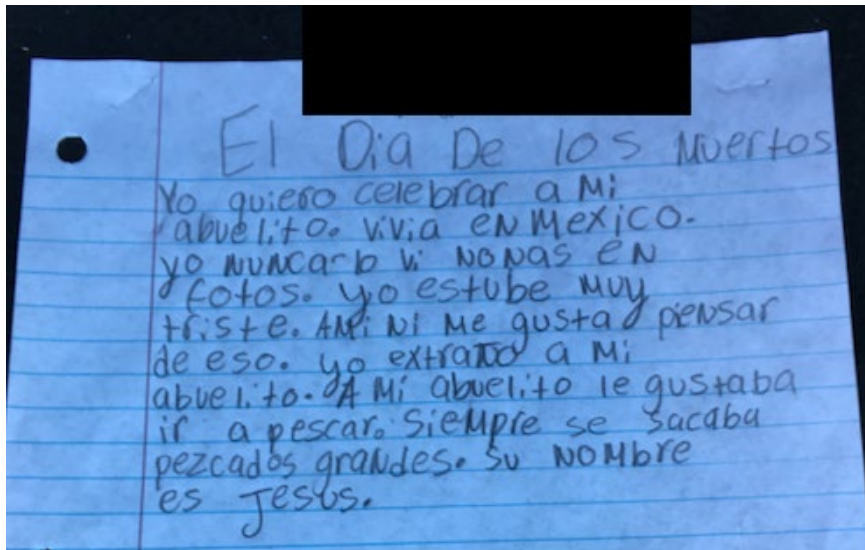 El Dia De los Muertos
Yo quiero celebrar a Mi
abuelito. vivia en Mexico.
yo nunca lo vi nonas en
fotos. yo estube muy
triste. Ami ni me gusta piensar
de eso. yo extraño a mi
abuelito. A Mi abuelito le gustaba
ir a pescar. Siempre se sacaba
pezcados grandes. Su nombre
es Jesus.